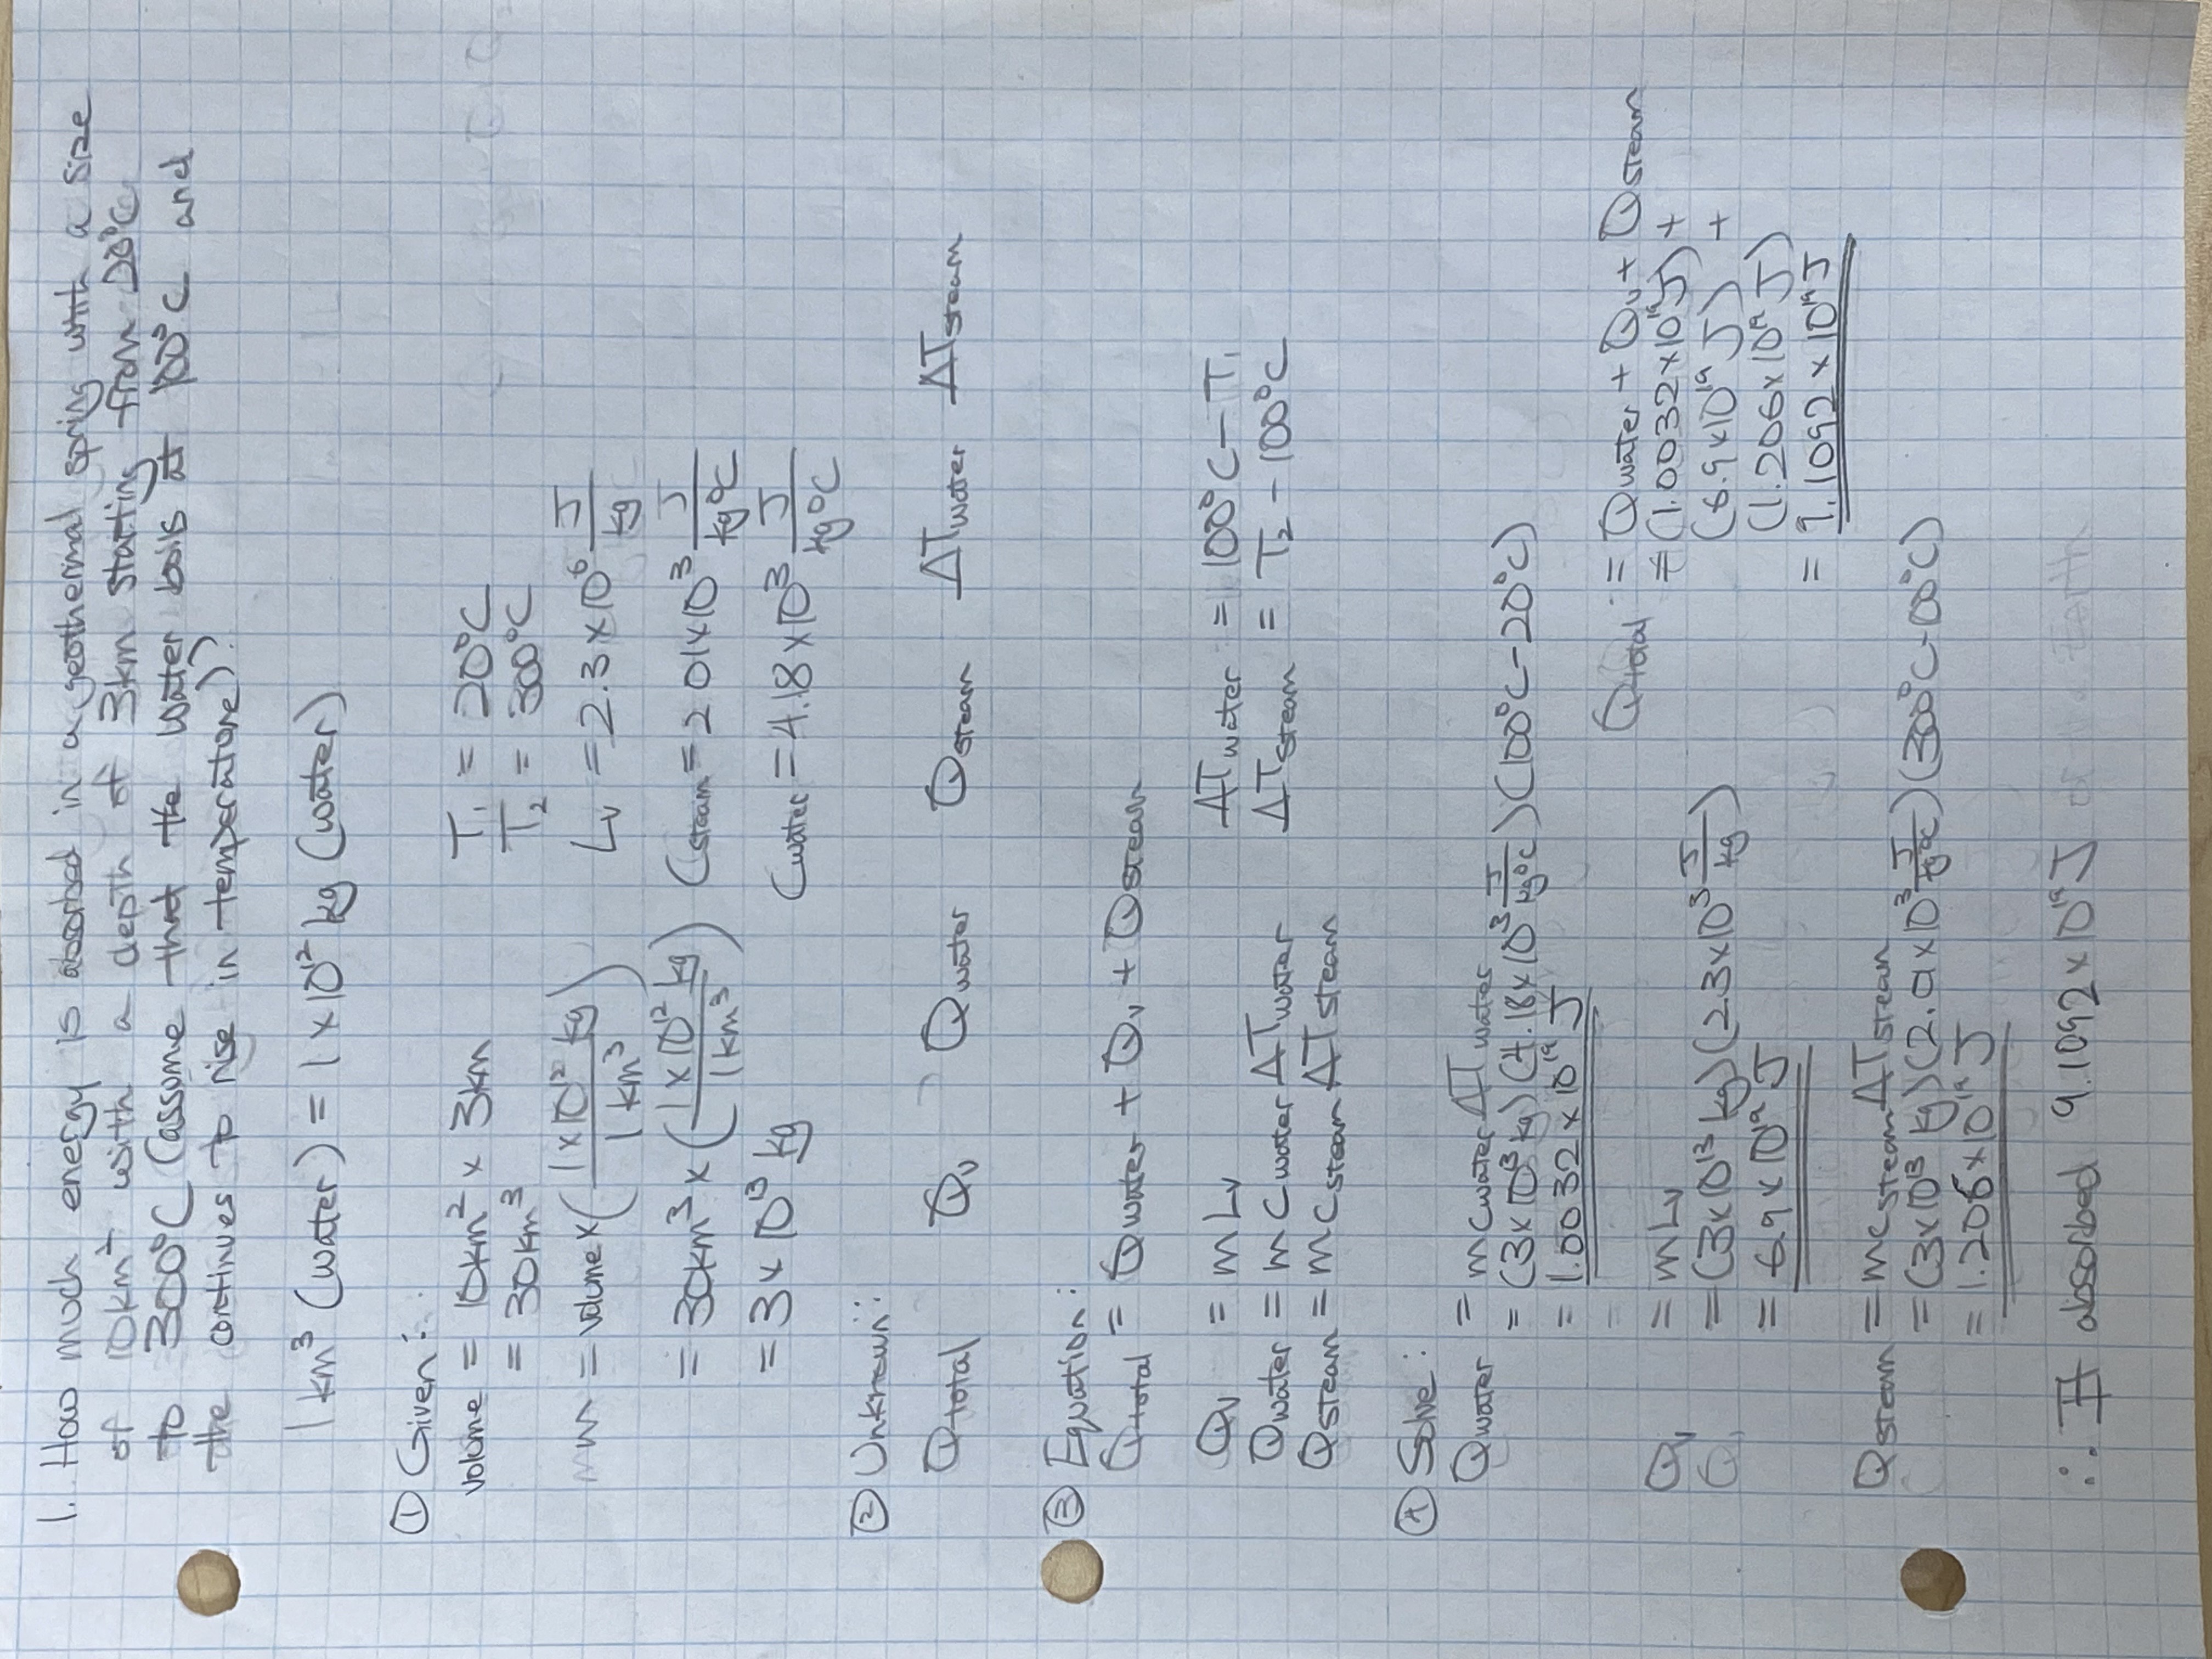 1. How much energy is absorbed in a geothermal spring with a size
of 10km² with a depth of 3km starting from 20°C
to 300°C (assume that the water boils at 100°C and
the continues to rise in temperature)?
1 km³ (water) = 1 x 10¹² kg (water)
① Given:
volume = 10km² x 3km
= 30km³
m = volume x (1 x 10¹² kg / 1 km³)
= 30km³ x (1 x 10¹² kg / 1 km³)
= 3 x 10¹³ kg
T₁ = 20°C
T₂ = 300°C
Lv = 2.3 x 10⁶ J/kg
Csteam = 2.01 x 10³ J/kg°C
Cwater = 4.18 x 10³ J/kg°C
② Unknown:
Qtotal Qv Qwater Qsteam ΔTwater ΔTsteam
③ Equation:
Qtotal = Qwater + Qv + Qsteam
Qv = mLv
Qwater = mCwaterΔTwater
Qsteam = mCsteamΔTsteam
ΔTwater = 100°C - T₁
ΔTsteam = T₂ - 100°C
④ Solve:
Qwater = mCwaterΔTwater
= (3x10¹³ kg)(4.18x10³ J/kg°C)(100°C-20°C)
= 1.0032 x 10¹⁹ J
Qv = mLv
= (3x10¹³ kg)(2.3x10³ J/kg)
= 6.9 x 10¹⁹ J
Qsteam = mCsteamΔTsteam
= (3x10¹³ kg)(2.01x10³ J/kg°C)(300°C-100°C)
= 1.206x10¹⁹ J
Qtotal = Qwater + Qv + Qsteam
= (1.0032x10¹⁹ J) +
(6.9x10¹⁹ J) +
(1.206x10¹⁹ J)
= 9.1092 x 10¹⁹ J
∴ It absorbed 9.1092 x 10¹⁹ J